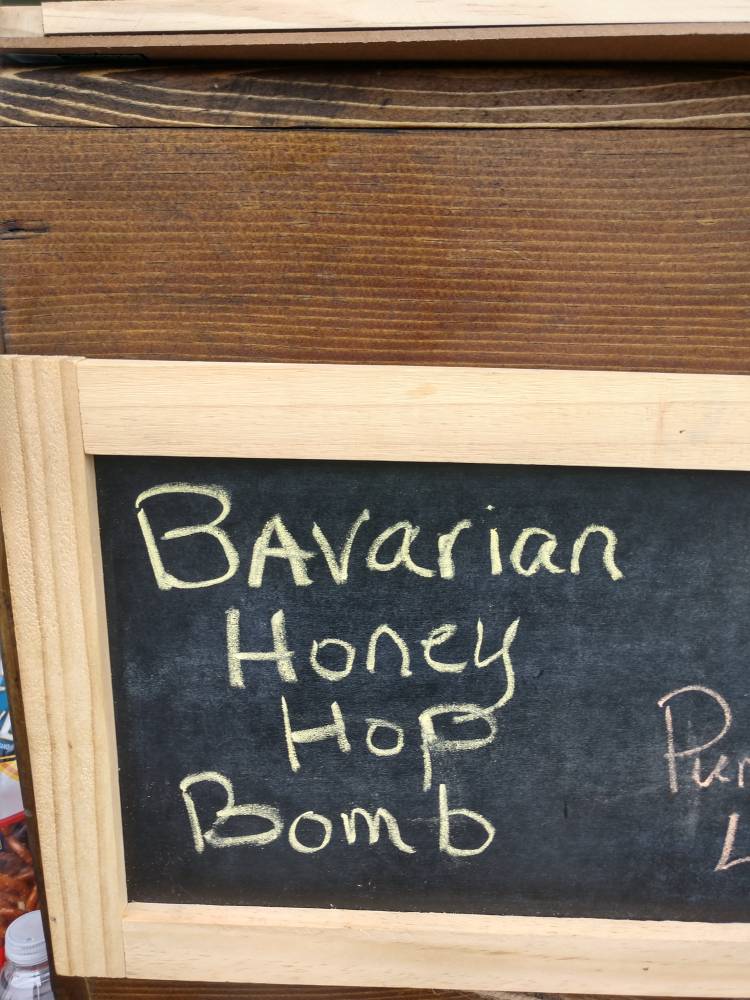 BAvarian
Honey
Hop
Bomb